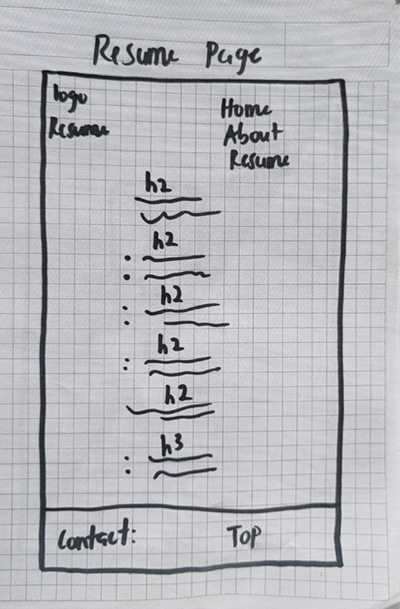 Resume Page
logo
Resume
Home
About
Resume
h2
h2
h2
h2
h2
h3
Contact:
TOP